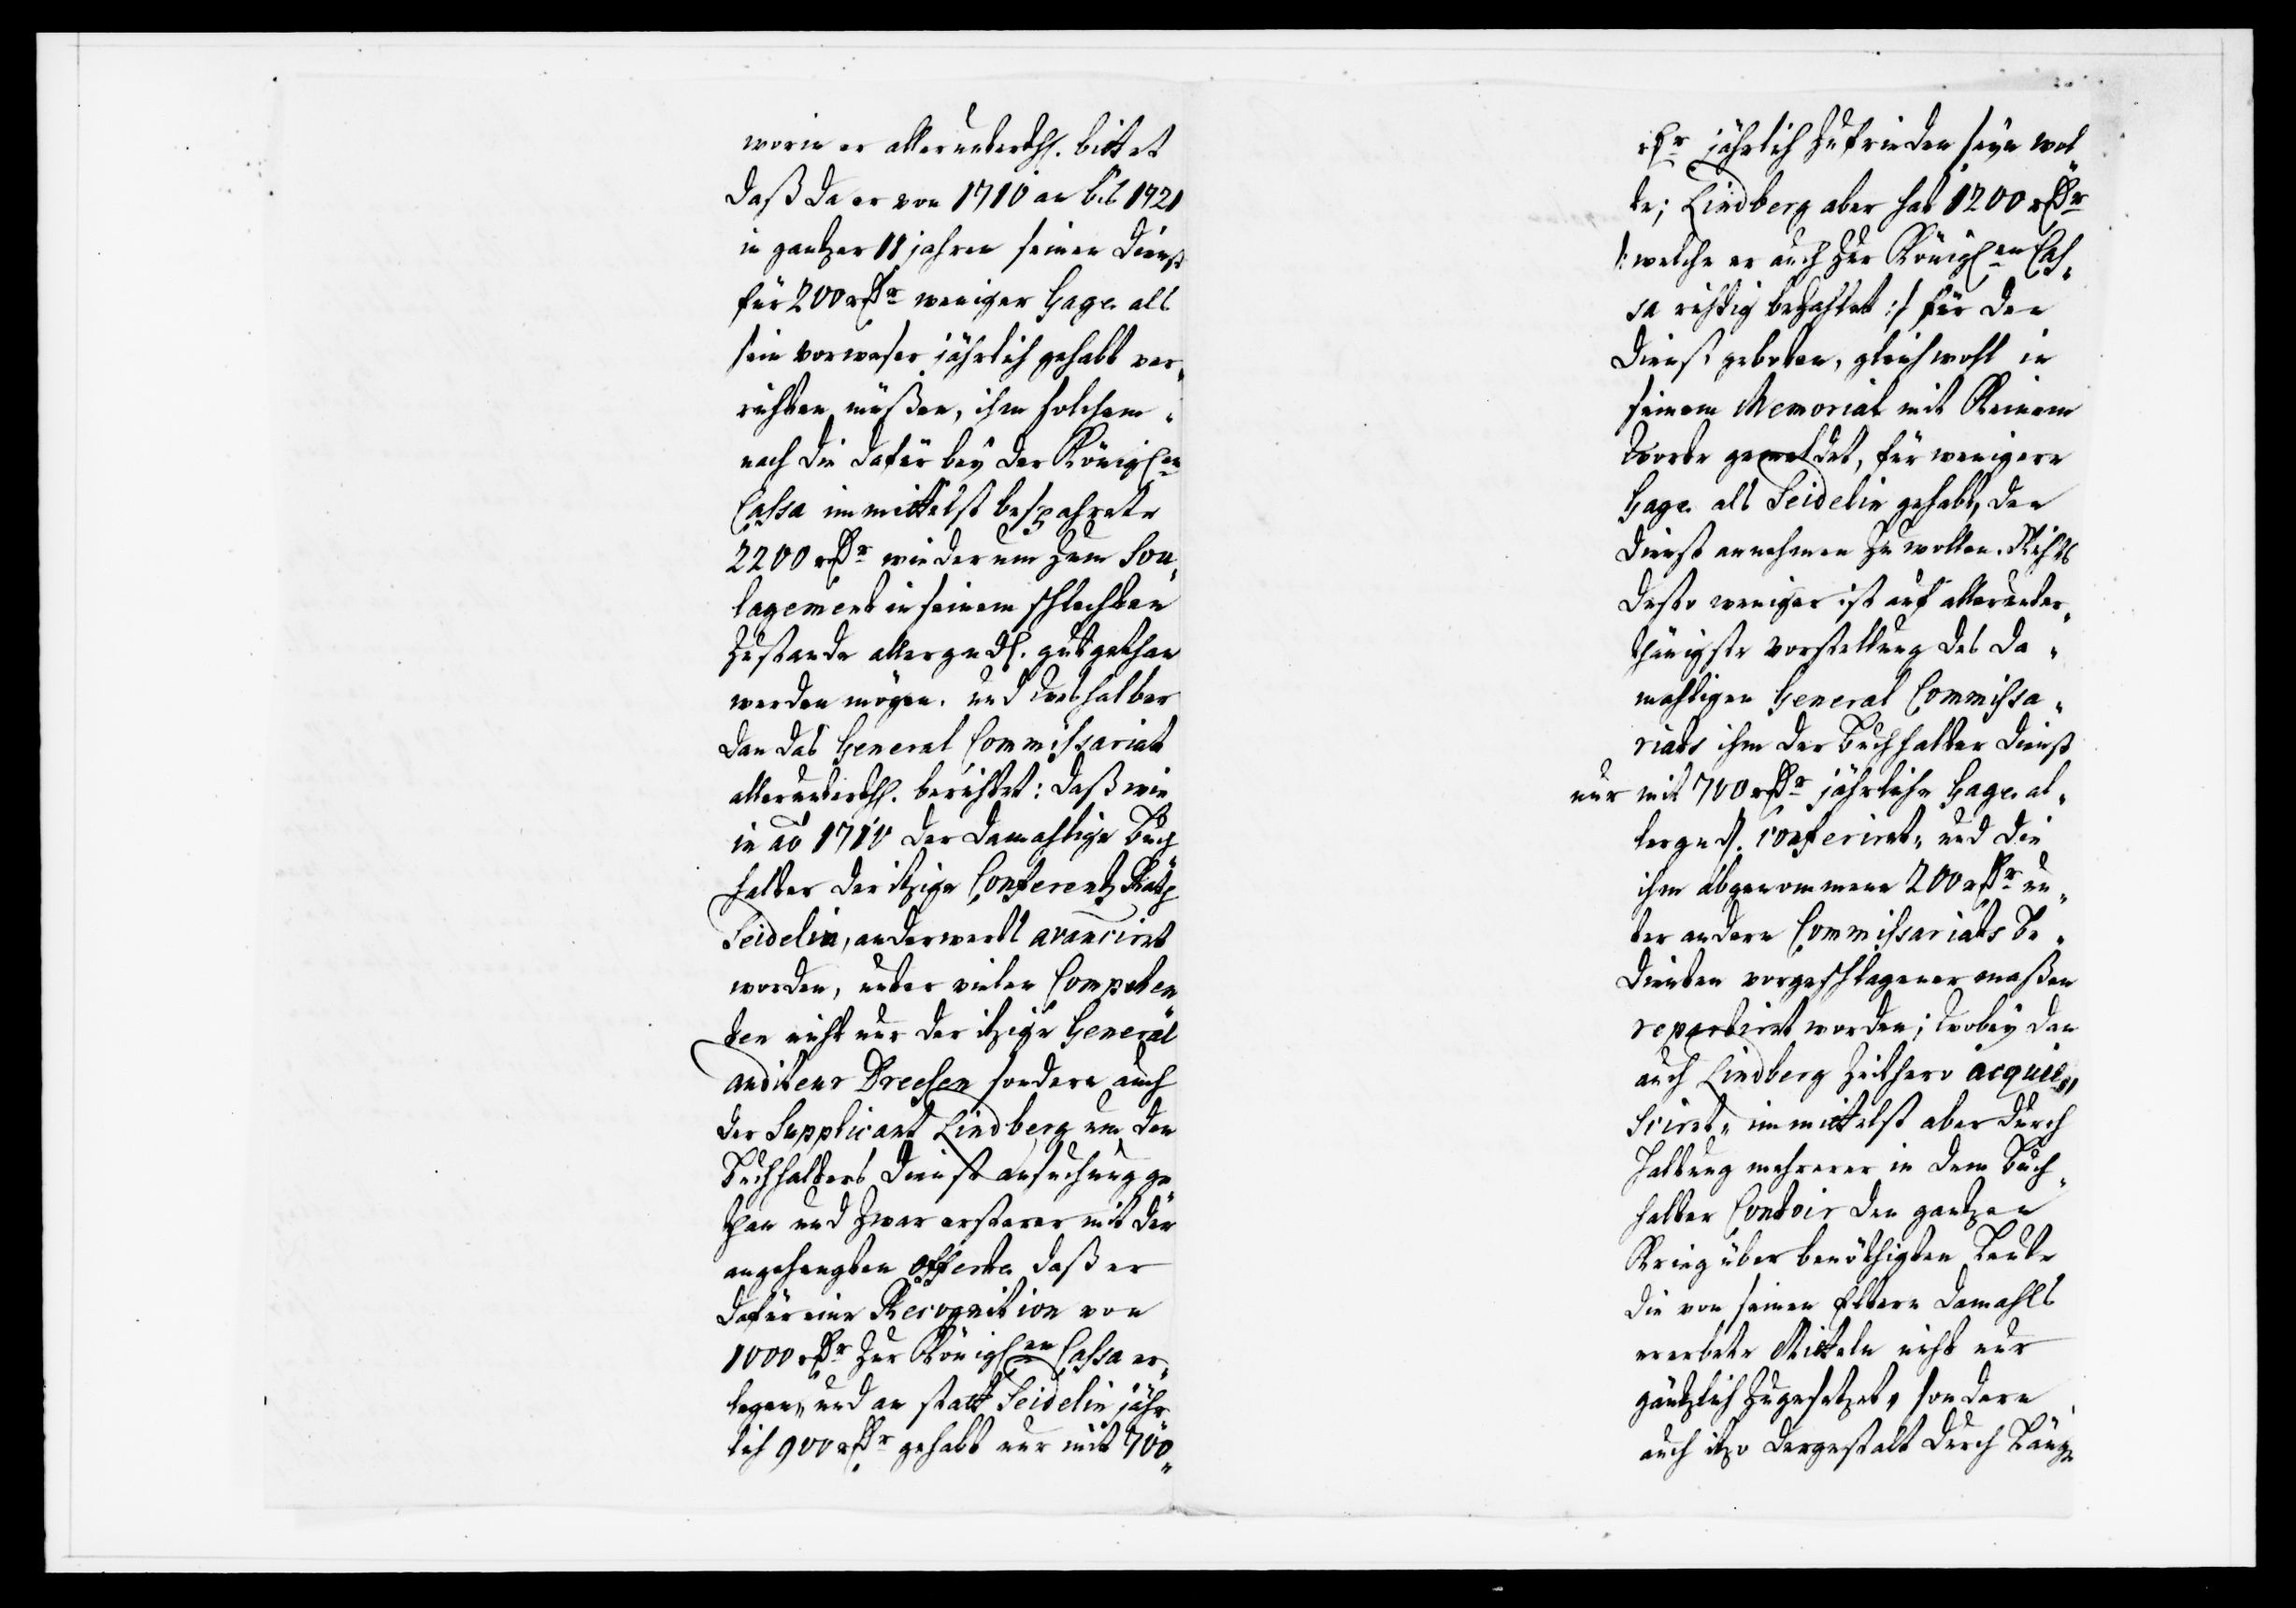 worin er allerunterthl. bittet
daß da er von 1710 an bis 1721
in gantzer 11 jahren seinen dienst
für 200 rdr weniger Gage als
sein vorweser jährlich gehabt ver„
richten müßen, ihm solchem„
nach die dafür bey der Königlen
Cassa immittelst bespahrete
2200 rdr wiederum zum Sou„
lagement in seinem schlechten
Zustande allergndl. gut gethan
werden mögen. und weshalber
dan das General Commissariat
allerunterthl. berichtet: daß wie
in ao 1710 der damahlige Buch
halter der itzige Conferentz Rath
Seidelin, anderwerts avanciret
worden, unter vielen Competen
ten nicht nur der itzige General
auditeur Dreesen sondern auch
der Supplicant Lindberg um den
Buchhalters dienst ansuchung ge
than und zwar ersterer mit der
angehengten Offerte daß er
dafür eine Recognition von
1000 rdr zur Königlen Cassa er„
legen, und an statt Seidelin jähr
lich 900 rdr gehabt nur mit 700„
rdr jährlich zufrieden seyn wol
te; Lindberg aber hat 1200 rdr
/: welche er auch zur Königlen Cas„
sa richtig bezahlet :/ für den
dienst geboten, gleichwohl in
seinem Memorial mit Keinem
worte gemeldet, für wenigere
Gage als Seidelin gehabt, den
dienst annehmen zu wollen. Nichts
desto weniger ist auf allerunter„
thänigste vorstellung des da„
mahligen General Commissa„
riats ihm der Buchhalter dienst
nur mit 700 rdr jährliche Gage al„
lergndl. conferiret, und die
ihm abgenommene 200 rdr un„
ter andern Commissariats Be„
dienten vorgeschlagener maßen
repartiret worden; wobey dan
auch Lindberg zeithero acquie„
sciret, immittelst aber durch
Haltung mehrerer in dem Buch„
halter Contoir den gantzen
Krieg über benöthigten Leute
die von seinen Eltern damahls
ererbete Mitteln nicht nur
gäntzlich zugesetzet, sondern
auch itzo dergestalt durch Läng